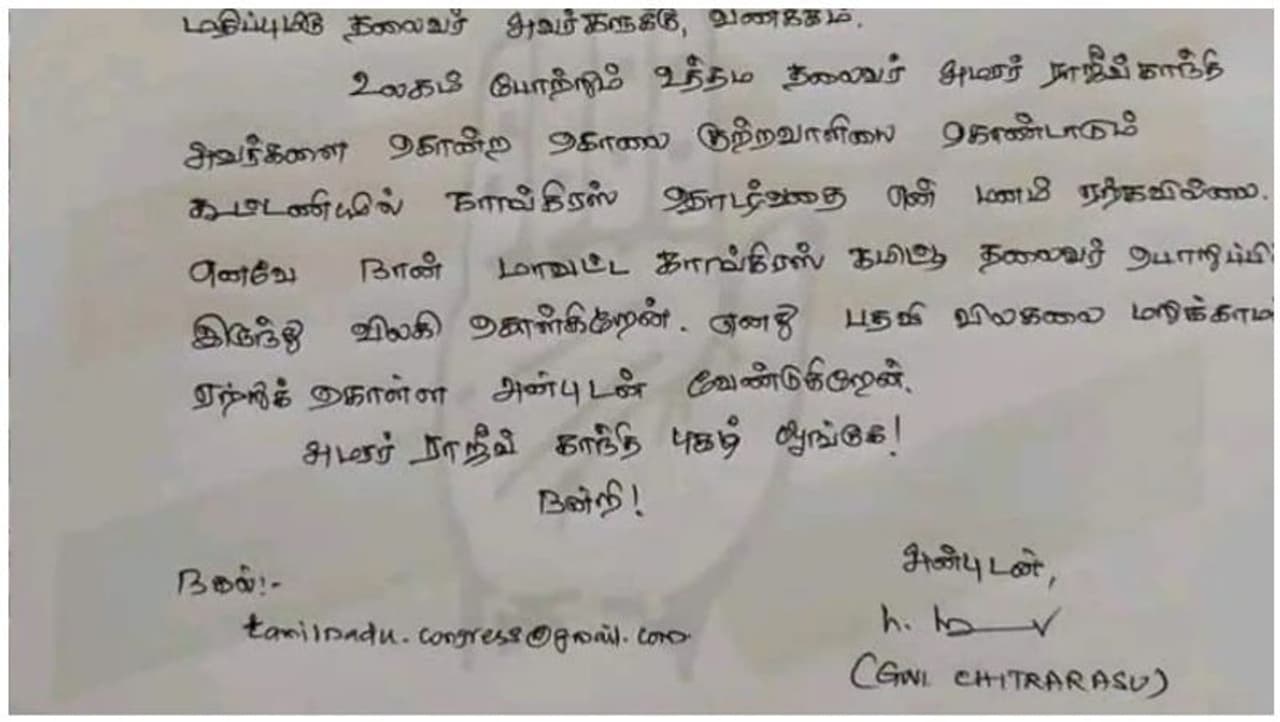 மதிப்புமிகு தலைவர் அவர்களுக்கு, வணக்கம்.
உலகம் போற்றும் உத்தம தலைவர் அமரர் ராஜீவ்காந்தி
அவர்களை கொன்ற கொலை குற்றவாளியை கொண்டாடும்
கூட்டணியில் காங்கிரஸ் தொடர்வதை என் மனம் ஏற்கவில்லை.
எனவே நான் மாவட்ட காங்கிரஸ் கமிட்டி தலைவர் பொறுப்பி
இருந்து விலகி கொள்கிறேன். எனது பதவி விலகலை மறுக்காம
ஏற்றுக் கொள்ள அன்புடன் வேண்டுகிறேன்.
அமரர் ராஜீவ் காந்தி புகழ் ஓங்குக!
நன்றி!
நகல்:-
tamilnadu.congress@gmail.com
அன்புடன்,
(GNL CHITRARASU)